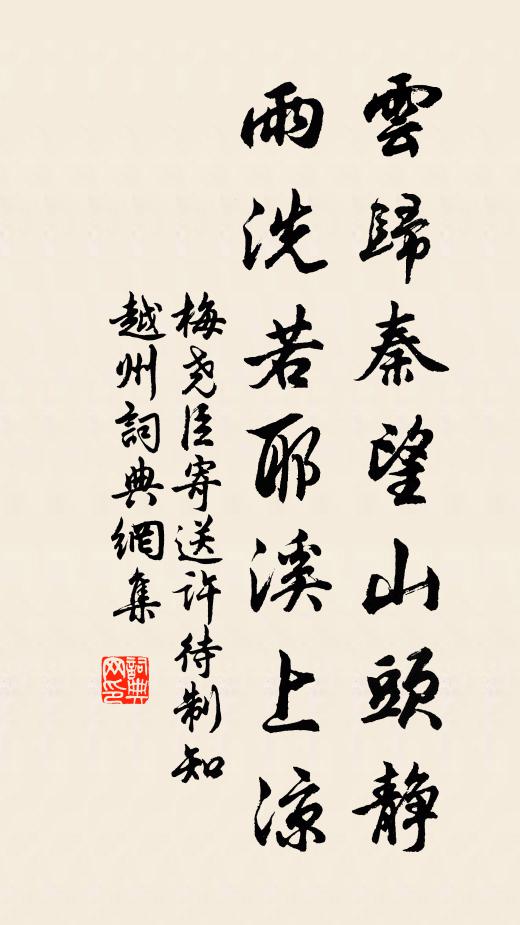 雲歸秦望山頭静
雨洗若耶溪上涼
梅尧臣寄送许待制知
越州詞典網集
詞典网印